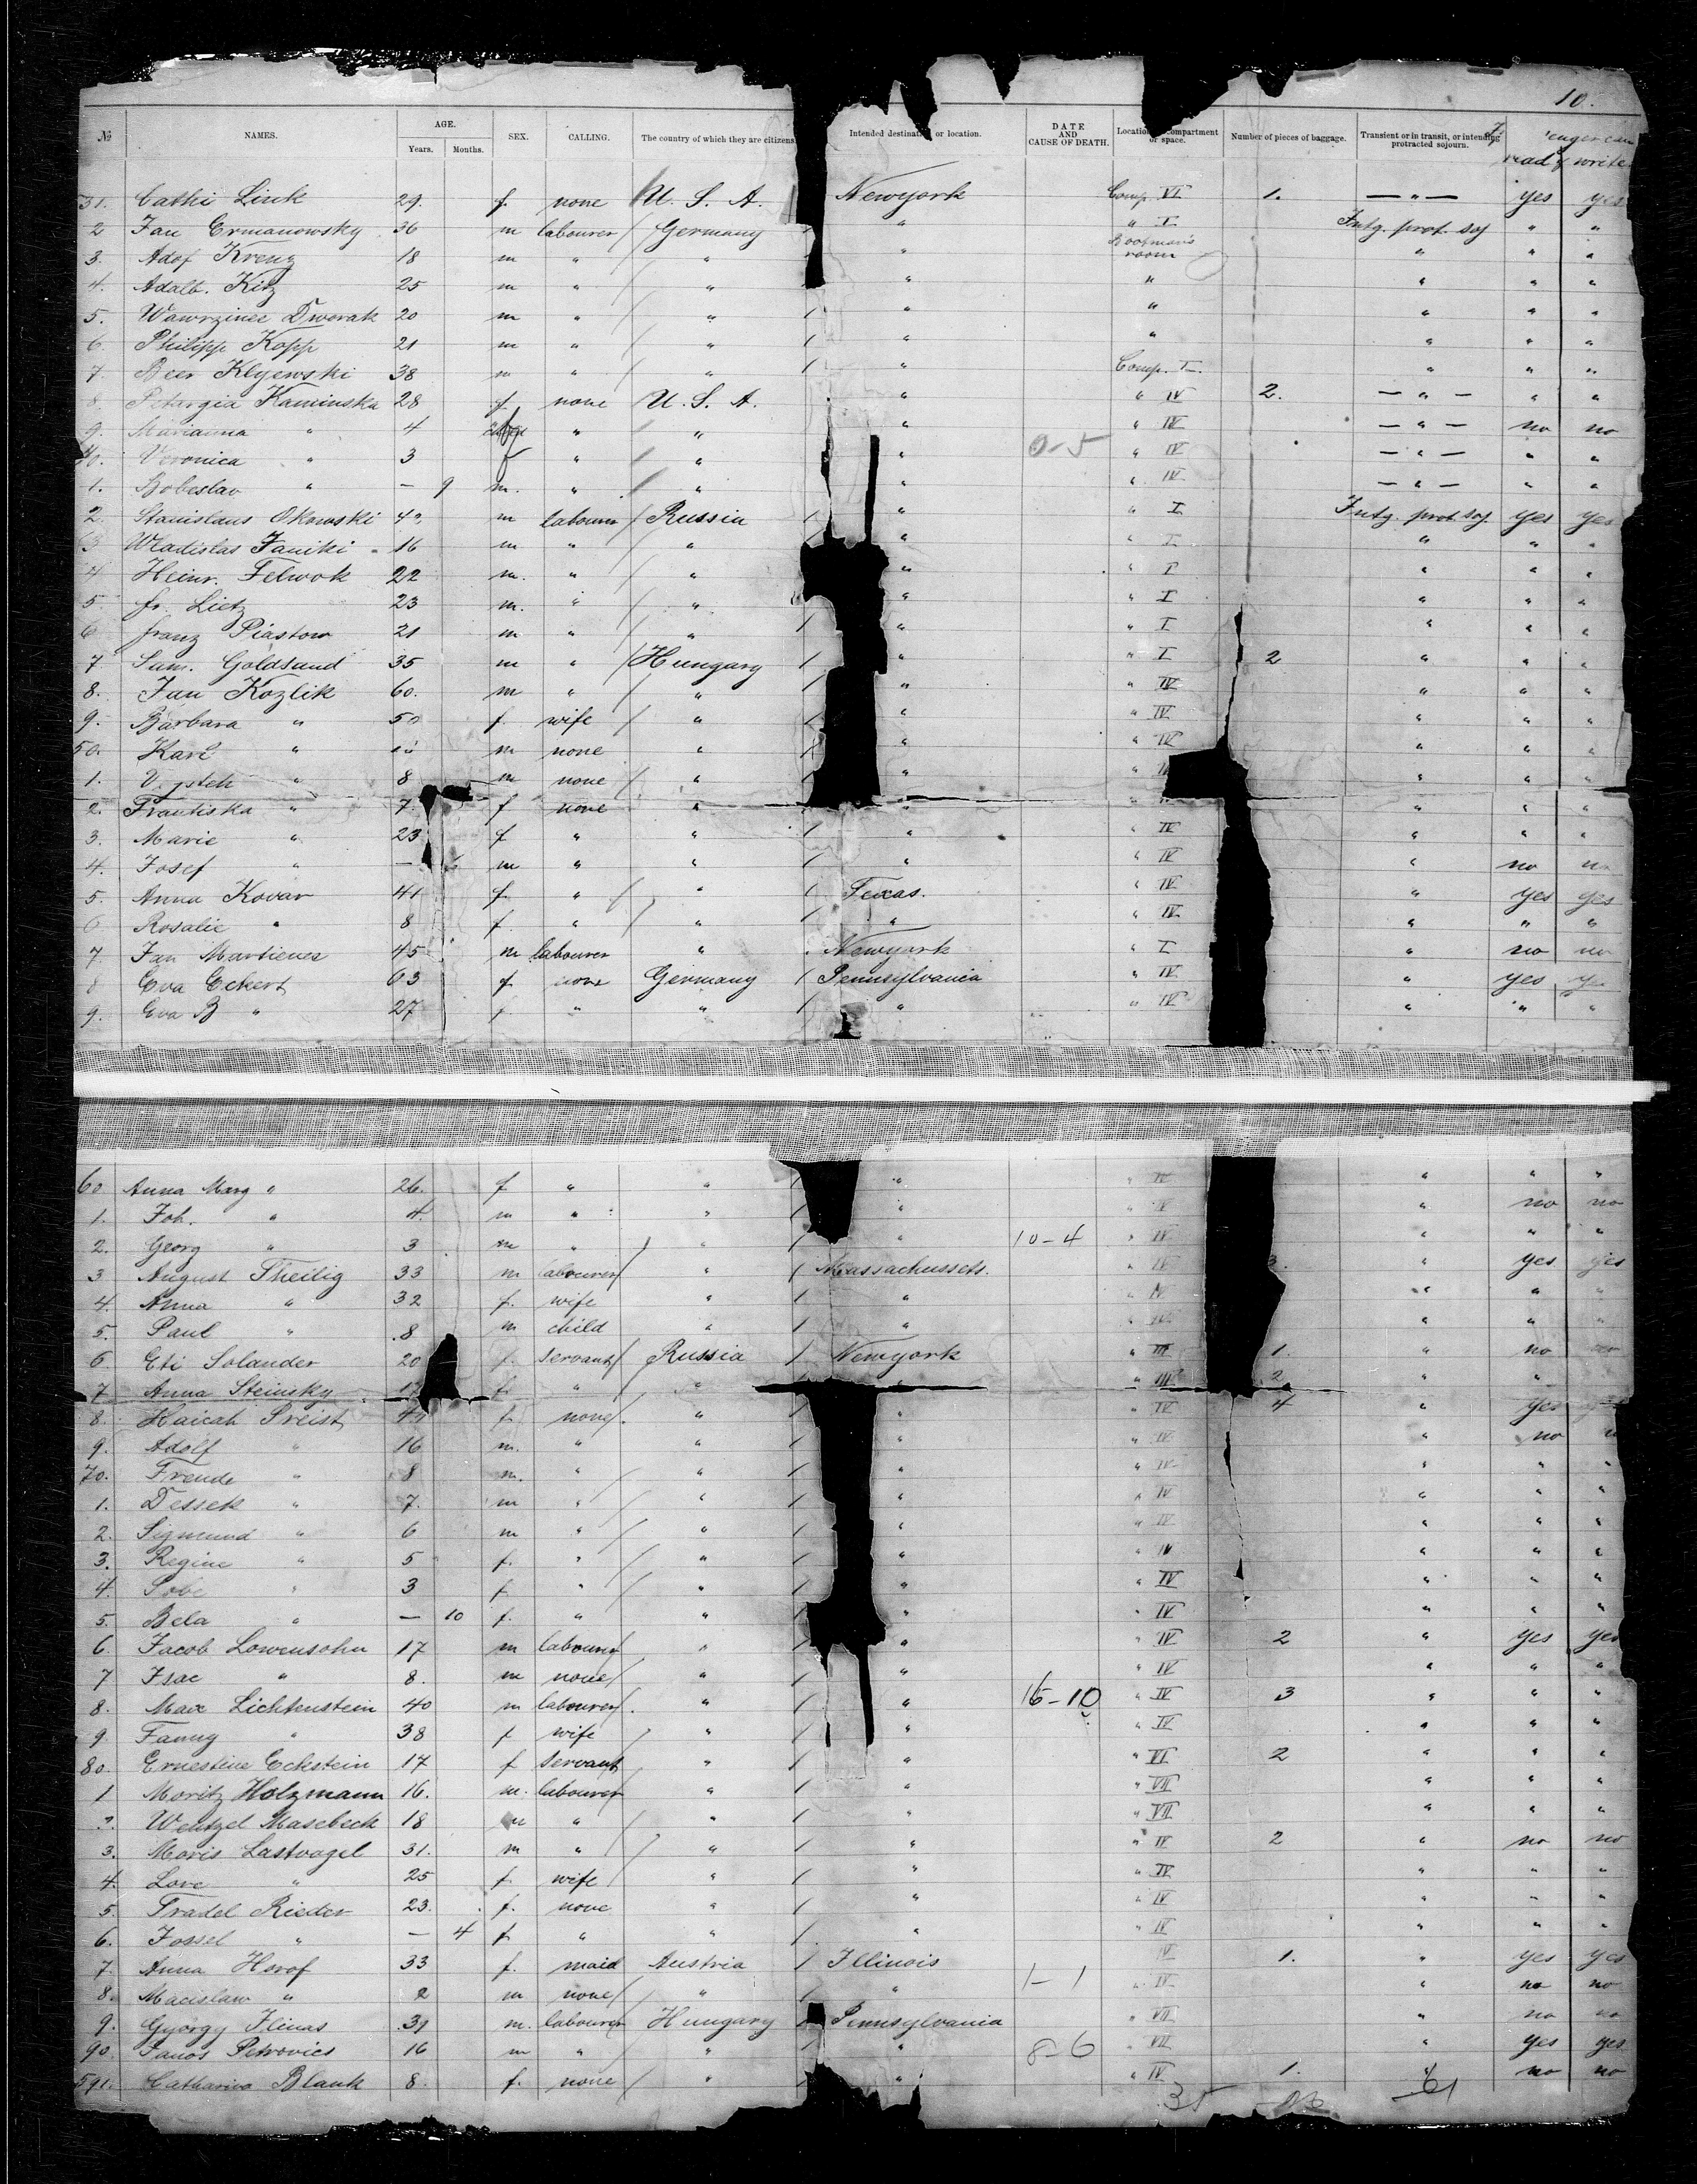 10.
№ NAMES. AGE. Years. Months. SEX. CALLING. The country of which they are citizens. Intended destination or location. DATE AND CAUSE OF DEATH. Location compartment or space. Number of pieces of baggage. Transient or in transit, or intending protracted sojourn. read & write
31. Cathi Link 29. f. none U. S. A. Newyork Comp. VI. 1. — " — yes yes
2 Jan Ermanowsky 36 m labourer Germany " " I Intg. prot. soj " "
3. Adof Krenz 18 m " " " Bootman's room " " "
4. Adalb. Kitz 25 m " " " " " " "
5. Wawrzinec Dwerak 20 m " " " " " " "
6. Philipp Kopp 21 m " " " " " " "
7. Beer Klyewski 38 m " " " Comp. I. " " "
8. Petargia Kaminska 28 f none U. S. A. " " IV 2. — " — " "
9. Marianna " 4 f " " " " IV — " — no no
40. Veronica " 3 f " " " 0-5 " IV — " — " "
1. Boleslav " — 9 m. " " " " IV — " — " "
2. Stanislaus Okowski m labourer Russia " " I Intg. prot. soj. yes yes
3 Wladislas Janiki 16 m " " " " I " " "
4 Heinr. Felwok 22 m. " " " " I " " "
5 fr. Lietz 23 m. " " " " I " " "
6 franz Piastow 21 m " " " " I " " "
7 Sam. Goldsand 35 m " Hungary " " I 2 " " "
8. Jan Kozlik 60. m " " " " IV " " "
9. Barbara " 50 f. wife " " " IV " " "
50. Karl " m none " " " IV " " "
1. " 8 m none " " " " "
2. Frantiska " 7. f none " " " " "
3. Marie " 23 f " " " " IV " " "
4. Josef " — 6 m " " " " IV " no no
5. Anna Kovar 41 f. " " Texas. " IV " yes yes
6 Rosalie " 8 f. " " " " IV " " "
7 Jan Martienes 45 m labourer " Newyork " I " no no
8 Eva Eckert 63 f none Germany Pennsylvania " IV " yes yes
9. Eva B " 27 f " " " " IV " " "
60 Anna Marg " 26. f " " " " IV " " "
1. Joh. " 4. m " " " " IV " no no
2. Georg " 3 m " " " 10-4 " IV " " "
3 August Theilig 33 m labourer " Massachussets. " IV 3. " yes yes
4. Anna " 32 f. wife " " " IV " " "
5. Paul " 8 m child " " " IV " " "
6 Eti Solander 20 f. servant Russia Newyork " III 1. " no no
7 Anna Steinsky f. " " " " III 2 " " "
8. Haicah Preist f. none " " " IV 4 " yes
9. Adolf " 16 m. " " " " IV " no
70. Freude " 8 m. " " " " IV " " "
1. Dessek " 7. m " " " " IV " " "
2. Sigmund " 6 m " " " " IV " " "
3. Regine " 5 f. " " " " IV " " "
4. Sobe " 3 f " " " " IV " " "
5. Bela " — 10 f. " " " " IV " " "
6. Jacob Lowensohn 17 m labourer " " " IV 2 " yes yes
7 Isac " 8. m none " " " IV " " "
8. Max Lichtenstein 40 m labourer " " 16-10 " IV 3 " " "
9 Fanny " 38 f wife " " " IV " " "
80. Ernestine Eckstein 17 f servant " " " VI 2 " " "
1 Moritz Holzmann 16. m. labourer " " " VII " " "
2. Wentzel Masebeck 18 m " " " " VII " " "
3. Moris Lastvogel 31. m " " " " IV 2 " no no
4. Lore " 25 f. wife " " " IV " " "
5. Fradel Rieder 23. f. none " " " IV " " "
6. Jossel " — 4 f " " " " IV " " "
7. Anna Horof 33 f. maid Austria Illinois IV 1. " yes yes
8. Macislaw " 2 m none " " 1-1 " IV " no no
9. György Ilinas 31 m. labourer Hungary Pennsylvania " VII " no no
90. Janos Petrovics 16 m " " " 8-6 " VII " yes yes
591. Catharina Blank 8. f. none " " " IV 1. " no no
35 61